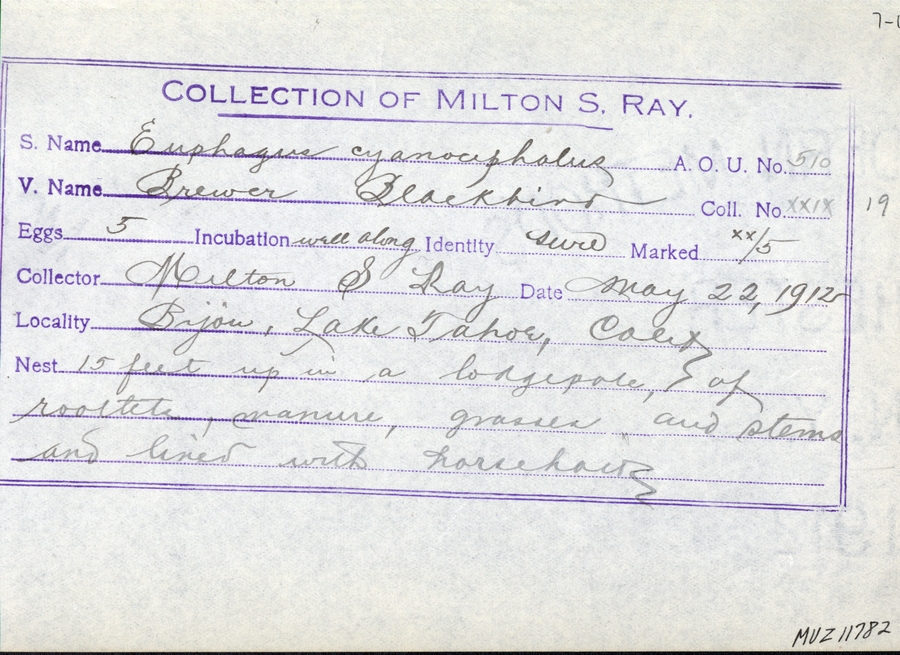 COLLECTION OF MILTON S. RAY.
S. Name Euphagus cyanocephalus A. O. U. No. 510
V. Name Brewer Blackbird Coll. No. XXIX 19
Eggs 5 Incubation well along Identity sure Marked xx/5
Collector Milton S Ray Date May 22, 1912
Locality Bijou, Lake Tahoe, Calif
Nest 15 feet up in a lodgepole, of
rootlets, manure, grasses and stems
and lined with horsehair
MVZ 11782